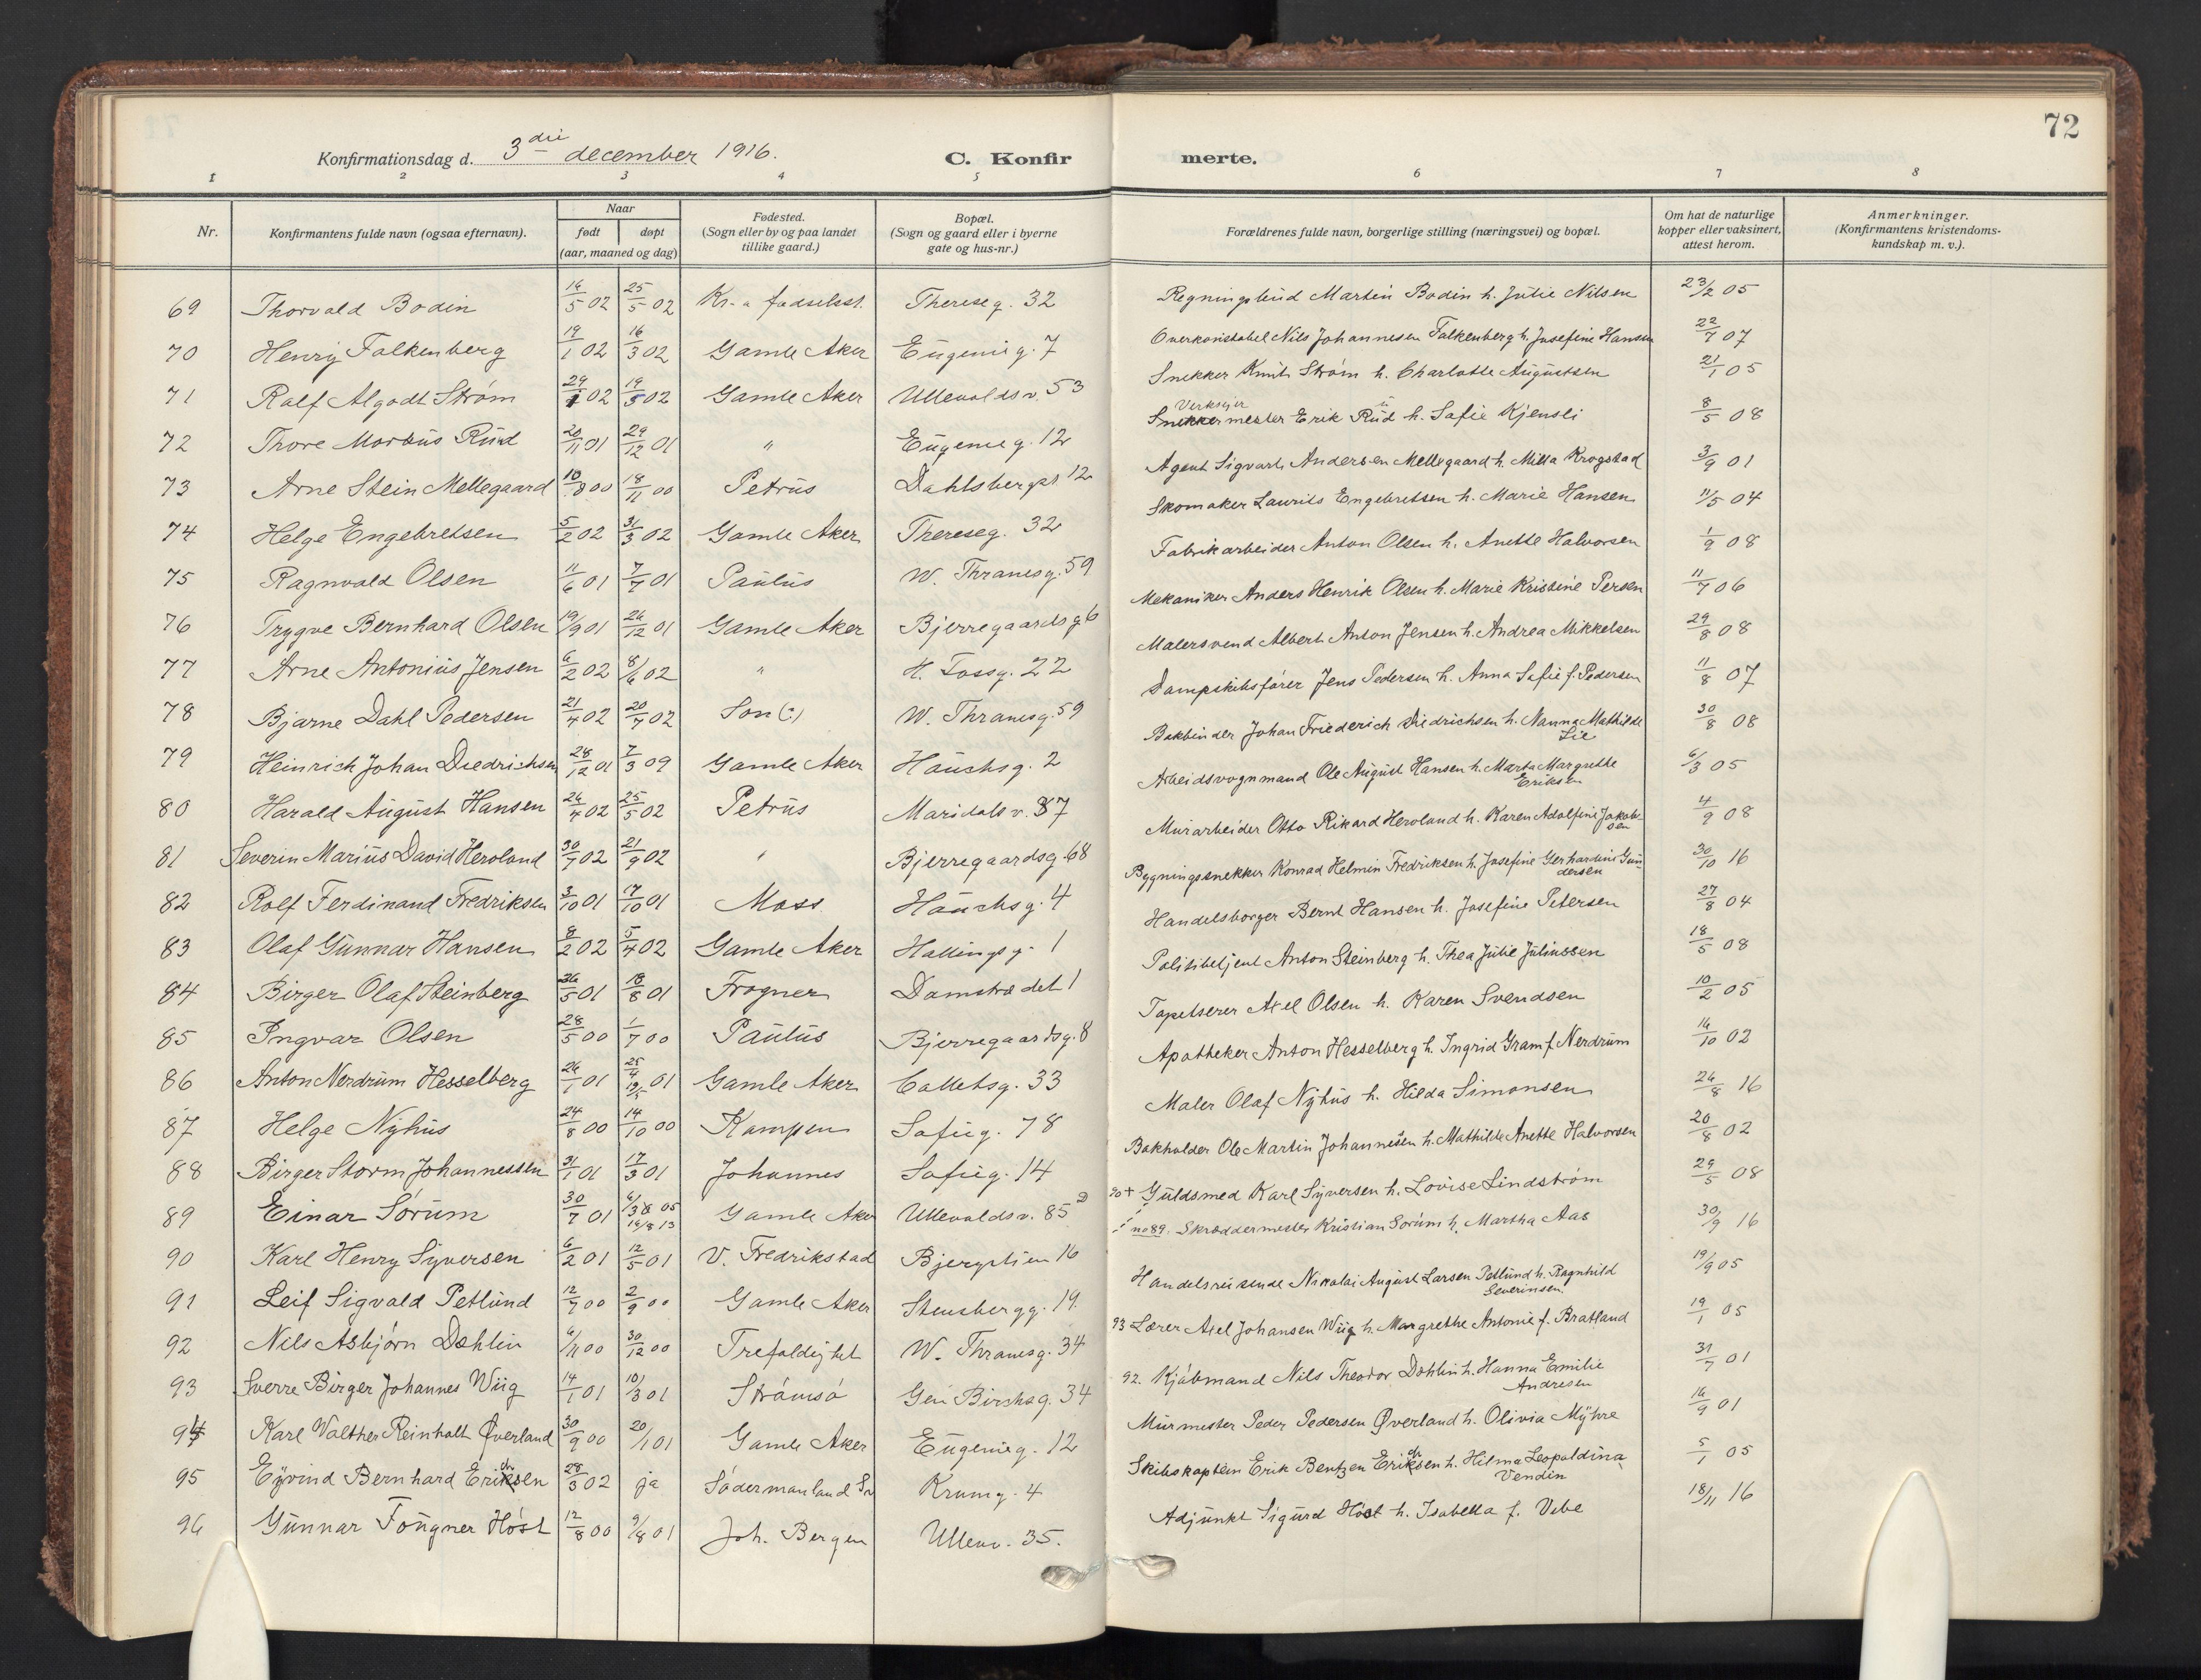 72
Konfirmationsdag d. 3die december 1916.
C. Konfirmerte.
1 2 3 4 5 6 7 8
Nr. Konfirmantens fulde navn (ogsaa efternavn). Naar født døpt (aar, maaned og dag) Fødested. (Sogn eller by og paa landet tillike gaard.) Bopæl. (Sogn og gaard eller i byerne gate og hus-nr.) Forældrenes fulde navn, borgerlige stilling (næringsvei) og bopæl. Om hat de naturlige kopper eller vaksinert, attest herom. Anmerkninger. (Konfirmantens kristendoms-kundskap m. v.).
69 Thorvald Bodin 14/5 02 25/5 02 Kr.a fødselsst. Thereseg. 32 Regningsbud Martin Bodin h. Julie Nilsen 23/2 05
70 Henry Falkenberg 19/1 02 16/3 02 Gamle Aker Eugenieg. 7 Overkonstabel Nils Johannesen Falkenberg h. Josefine Hansen 22/7 07
71 Ralf Algodt Strøm 02 19/5 02 Gamle Aker Ullevoldsv. 53 Snekker Knut Strøm h. Charlotte Augustsen 21/1 05
72 Thore Markus Ruud 20/11 01 29/12 01 " Eugenieg. 12 Verkseier Snekkermester Erik Rud h. Safie Kjensli 8/5 08
73 Arne Stein Mellegaard 10/8 00 18/11 00 Petrus Dahlsbergst 12 Agent Sigvart Andersen Mellegaard h. Milla Krogstad 3/9 01
74 Helge Engebretsen 5/2 02 31/3 02 Gamle Aker Thereseg. 32 Skomaker Laurits Engebretsen h. Marie Hansen 11/5 04
75 Ragnvald Olsen 11/6 01 7/7 01 Paulus W. Thranesg. 59 Fabrikarbeider Anton Olsen h. Anette Halvorsen 1/9 08
76 Trygve Bernhard Olsen 19/9 01 26/12 01 Gamle Aker Bjerregaardsg 6 Mekaniker Anders Henrik Olsen h. Marie Kristine Persen 11/7 06
77 Arne Antonius Jensen 6/2 02 8/6 02 " H. Tossg. 22 Malersvend Albert Anton Jensen h. Andrea Mikkelsen 29/8 08
78 Bjarne Dahl Pedersen 21/4 02 20/7 02 Son (:) W. Thranesg. 59 Dampskibsfører Jens Pedersen h. Anna Safie f. Pedersen 11/8 07
79 Heinrich Johan Diedrichsen 28/12 01 7/3 09 Gamle Aker Hauchsg. 2 Bokbinder Johan Friederich Diedrichsen h. Nanna Mathilde Lie 30/8 08
80 Harald August Hansen 26/4 02 25/5 02 Petrus Maridalsv. 87 Arbeidsvognmand Ole August Hansen h. Marta Margrethe Eriksen 6/3 05
81 Severin Marius David Heroland 30/7 02 21/9 02 " Bjerregaardsg 68 Murarbeider Otto Rikard Heroland h. Karen Adolfine Jakobsen 4/9 08
82 Rolf Ferdinand Fredriksen 3/10 01 17/10 01 Moss Hauchsg. 4 Bygningssnekker Konrad Helmin Fredriksen h. Josefine Gerhardine Gundersen 30/10 16
83 Olaf Gunnar Hansen 8/2 02 5/4 02 Gamle Aker Hallingsg. 1 Handelsborger Bernt Hansen h. Josefine Petersen 27/8 04
84 Birger Olaf Steinberg 26/5 01 18/8 01 Frogner Damstrædet 1 Politibetjent Anton Steinberg h. Thea Julie Juliussen 18/5 08
85 Ingvar Olsen 28/5 00 1/7 00 Paulus Bjerregaardsg. 8 Tapetserer Axel Olsen h. Karen Svendsen 10/2 05
86 Anton Nerdrum Hesselberg 26/1 01 25/4 19/5 01 Gamle Aker Colletsg. 33 Apotheker Anton Hesselberg h. Ingrid Gram f. Nerdrum 14/10 02
87 Helge Nyhus 24/8 00 14/10 00 Kampen Safieg. 78 Maler Olaf Nyhus h. Hilda Simonsen 26/8 16
88 Birger Storm Johannessen 31/1 01 17/3 01 Johannes Safieg. 14 Bokholder Ole Martin Johannesen h. Mathilde Anette Halvorsen 20/8 02
89 Einar Sørum 30/7 01 Gamle Aker Ullevoldsv. 85 D 90 + Guldsmed Karl Syversen h. Lovise Lindstrøm 29/5 08
90 Karl Henry Syversen 6/2 01 12/5 01 V. Fredrikstad Bjergstien 16 no 89. Skræddermester Kristian Sørum h. Martha Aas 30/9 16
91 Leif Sigvald Petlund 12/7 00 2/9 00 Gamle Aker Stensbergg. 19. Handelsreisende Nikolai August Larsen Petlund h. Ragnhild Severinsen 19/9 05
92 Nils Asbjørn Dahlin 6/11 00 30/12 00 Trefoldighet W. Thranesg. 34 93 Lærer Axel Johansen Wiig h. Margrethe Antonie f. Bratland 19/1 05
93 Sverre Birger Johannes Wiig 14/1 01 10/3 01 Strømsø Gen Birchsg. 34 92. Kjøbmand Nils Theodor Dahlin h. Hanna Emilie Andresen 31/7 01
94 Karl Walther Reinholt Øverland 30/9 00 20/1 01 Gamle Aker Eugenieg. 12 Murmester Peder Pedersen Øverland h. Olivia Myhre 16/9 01
95 Eyvind Bernhard Eriksen 28/3 02 ja Södermanland Sv Krumg. 4 Skibskaptein Erik Bentzen Eriksen h. Hilma Leopoldina Vendin 5/1 05
96 Gunnar Fougner Høst 12/8 00 9/8 01 Joh. Bergen Ullev. 35. Adjunkt Sigurd Høst h. Isabella f. Vibe 18/11 16